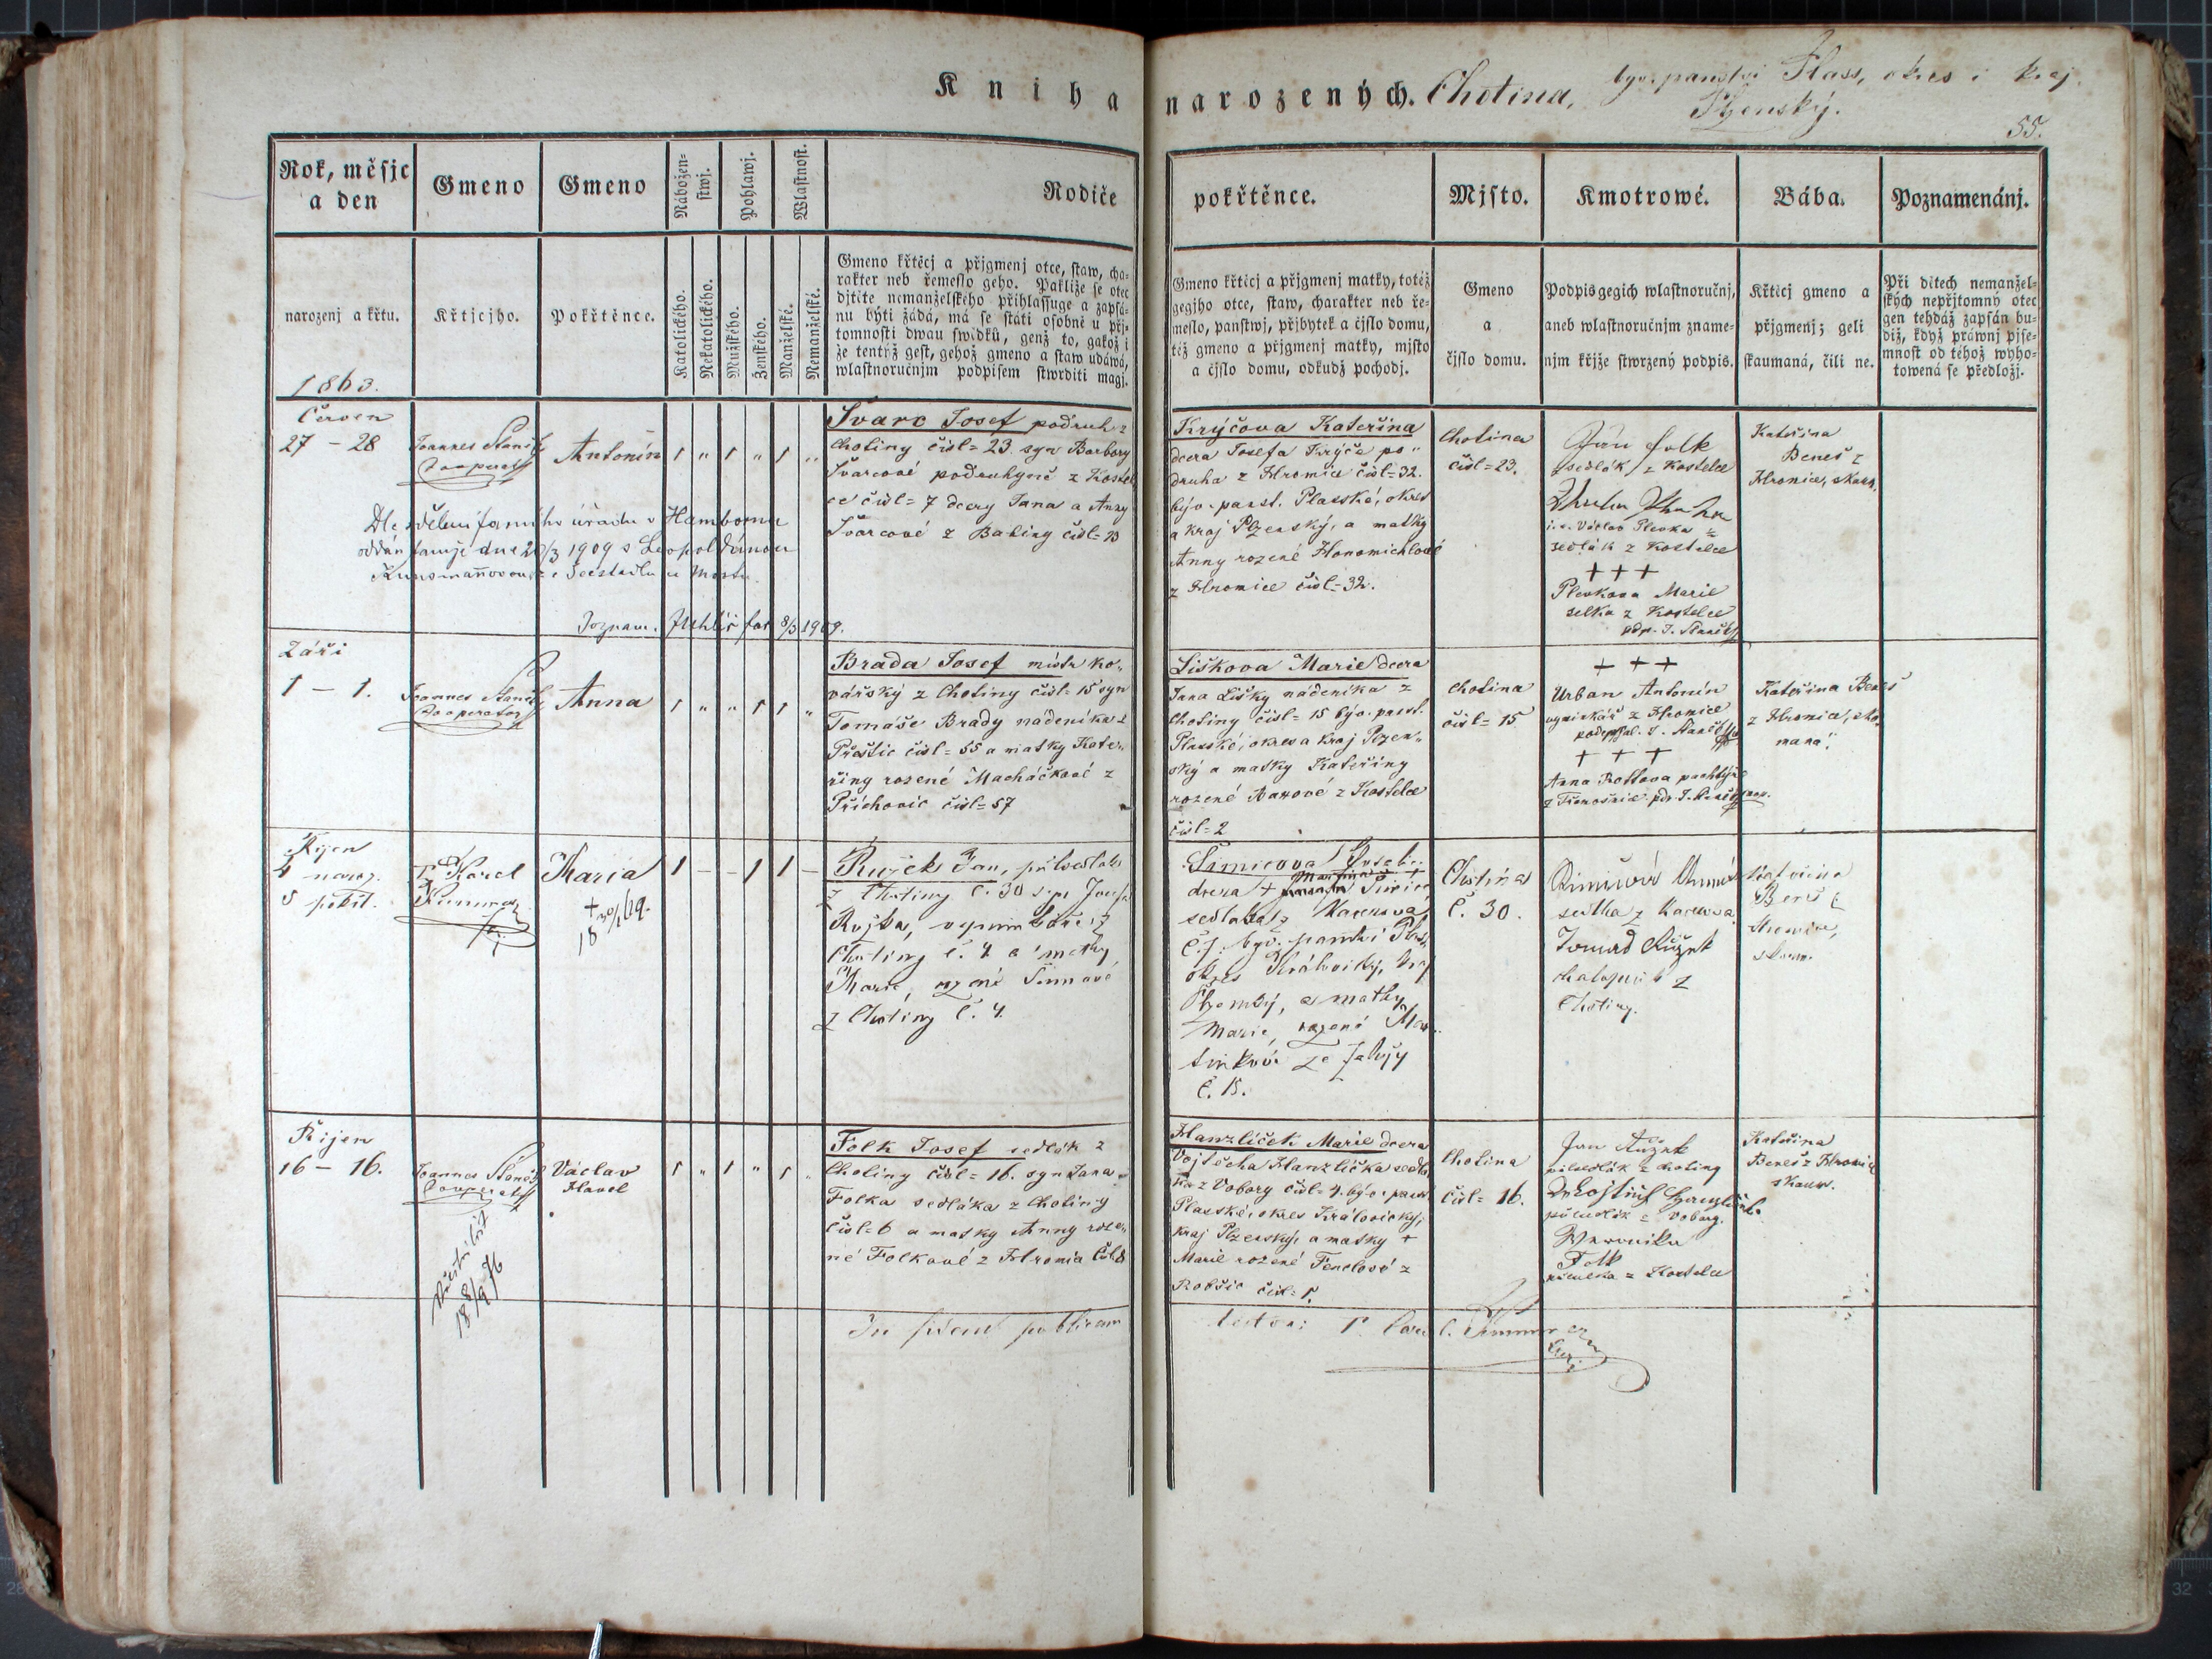 Kniha narozených. Chotina, býv. panství Plass, okres i kraj
Plzenský.
55.
Rok, měsjc
a den
Gmeno
Gmeno
Nábožen-
stwj.
Pohlawj.
Wlastnost.
Rodiče
pokřtěnce.
Mjsto.
Kmotrowé.
Bába.
Poznamenánj.
narozenj a křtu.
Křtjcjho.
Pokřtěnce.
Katolického.
Nekatolického.
Mužského.
Ženského.
Manželské.
Nemanželské.
Gmeno křtěcj a přjgmenj otce, staw, cha-
rakter neb řemeslo geho. Pakliže se otec
djtěte nemanželského přihlassuge a zapsá-
nu býti žádá, má se státi osobně u přj-
tomnosti dwau swědků, genž to, gakož i
že tentýž gest, gehož gmeno a staw udáwá,
wlastnoručnjm podpisem stwrditi magj.
Gmeno křtěcj a přjgmenj matky, totéž
gegjho otce, staw, charakter neb ře-
meslo, panstwj, přjbytek a čjslo domu,
též gmeno a přjgmenj matky, mjsto
a čjslo domu, odkudž pocházj.
Gmeno
a
čjslo domu.
Podpis gegich wlastnoručnj,
aneb wlastnoručnjm zname-
njm křjže stwrzený podpis.
Křtěcj gmeno a
přjgmenj; geli
zkaumaná, čili ne.
Při dětech nemanžel-
ských nepřjtomný otec
gen tehdáž zapsán bu-
diž, když práwnj pjse-
mnost od téhož wyho-
towená se předložj.
1863.
Červen
27 – 28
Joannes Staněk
Cooperator
Antonín
1 " 1 " 1 "
Švarc Josef podruh z
Chotiny čísl= 23. syn Barbory
Švarcové podruhyně z Kostel
ce čísl= 7 dcery Jana a Anny
Švarcové z Babiny čísl= 13
Krýčova Kateřina
dcera Josefa Krýče po„
druha z Hromice čísl= 32.
býv. panst. Plasské, okres
a kraj Plzenský, a matky
Anny rozené Honomichlové
z Hromice čísl= 32.
Chotina
čísl= 23.
Jan Folk
sedlák z Kostelce
Václav Plevka
sedlák z Kostelce
+ + +
Plevkova Marie
selka z Kostelce
pdp. J. Staněk
Kateřina
Beneš z
Hromice, skoum.
Dle sdělení farního úřadu v Hamborna
oddán tamže dne 20/3 1909 s Leopoldinou
Poznam. far 8/3 1909.
Září
1 – 1.
Joannes Staněk
Cooperator
Anna
1 " " 1 1 "
Brada Josef mistr ko„
vářský z Chotiny čísl= 15 syn
Tomáše Brady nádeníka z
Přeštic čísl= 55 a matky Kate„
řiny rozené Macháčkové z
Příchovic čísl= 57
Liškova Marie dcera
Jana Lišky nádeníka z
Chotiny čísl= 15 býv. panst.
Plasské, okres a kraj Plzen„
ský a matky Kateřiny
rozené z Kostelce
čísl= 2
Chotina
čísl= 15
+ + +
Urban Antonín
z Hromice
podepsal. J. Staněk
+ + +
Anna
z Třemošnice. pdp. J. Staněk
Kateřina Beneš
z Hromice, skou
maná.
Říjen
4 naroz.
5 pokřt.
P. Karel
Kummer
Maria
+ 30/1 1869.
1 – – 1 1 –
Ružek Jan, půlsedlák
z Chotiny č. 30 syn Josefa
Růžka, výminkáře z
Chotiny č. 4 a matky
Marie, rozené
z Chotiny č. 4.
Šimicova
dcera + Martina Šimice
sedláka z
č. 7. býv. panství Plas,
okres Královický, kraj
Plzenský, a matky
Marie, rozené Mar
tinkové ze
č. 15.
Chotina
č. 30.
selka z
Tomáš Růžek
chalupník z
Chotiny.
Kateřina
Beneš z
Hromice,
skoum.
Říjen
16 – 16.
Joannes Staněk
Cooperator
Václav
Havel
1 " 1 " 1 "
Folk Josef sedlák z
Chotiny čísl= 16. syn Jana
Folka sedláka z Chotiny
čísl= 6 a matky Anny roze„
né Folkové z Hromice čísl. 8
Hanzlíček Marie dcera
Vojtěcha Hanzlíčka sedlá
ka z Vobory čísl= 4. býv. panst.
Plasské, okres Královický,
kraj Plzenský, a matky +
Marie rozené Fenclové z
Robčic čísl= 1.
Chotina
čísl= 16.
Jan Růžek
půlsedlák z Chotiny
Hanzlíček
půlsedlák z Vobory.
Weronika
Folk
z Kostelce
Kateřina
Beneš z Hromice
skoum.
8/9 1876
In fidem publicam
testor: P. Carl C. Kummer